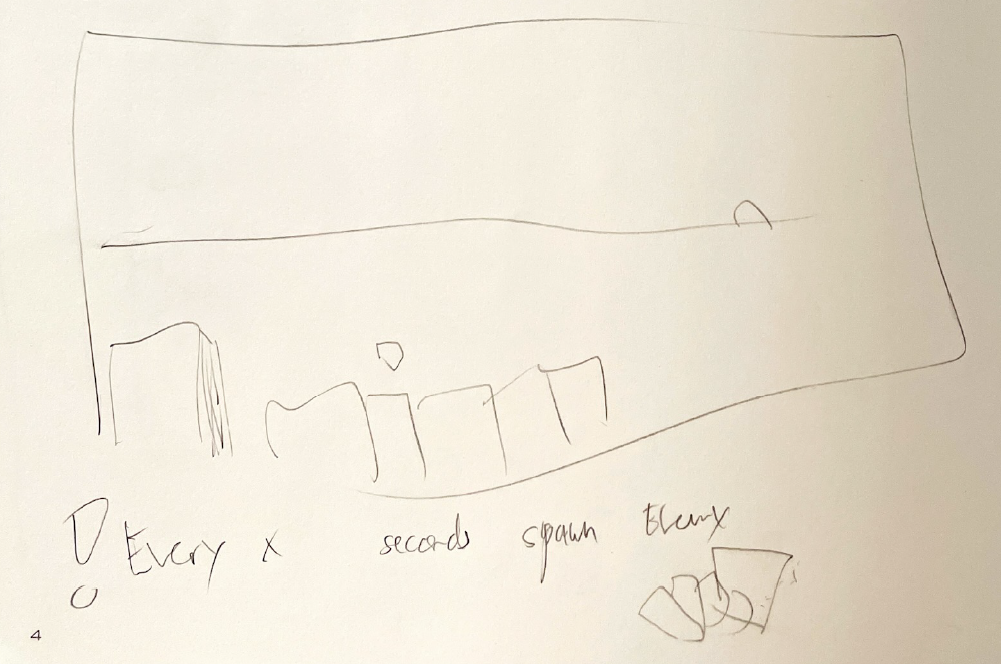 ! Every x seconds spawn Enemy
4